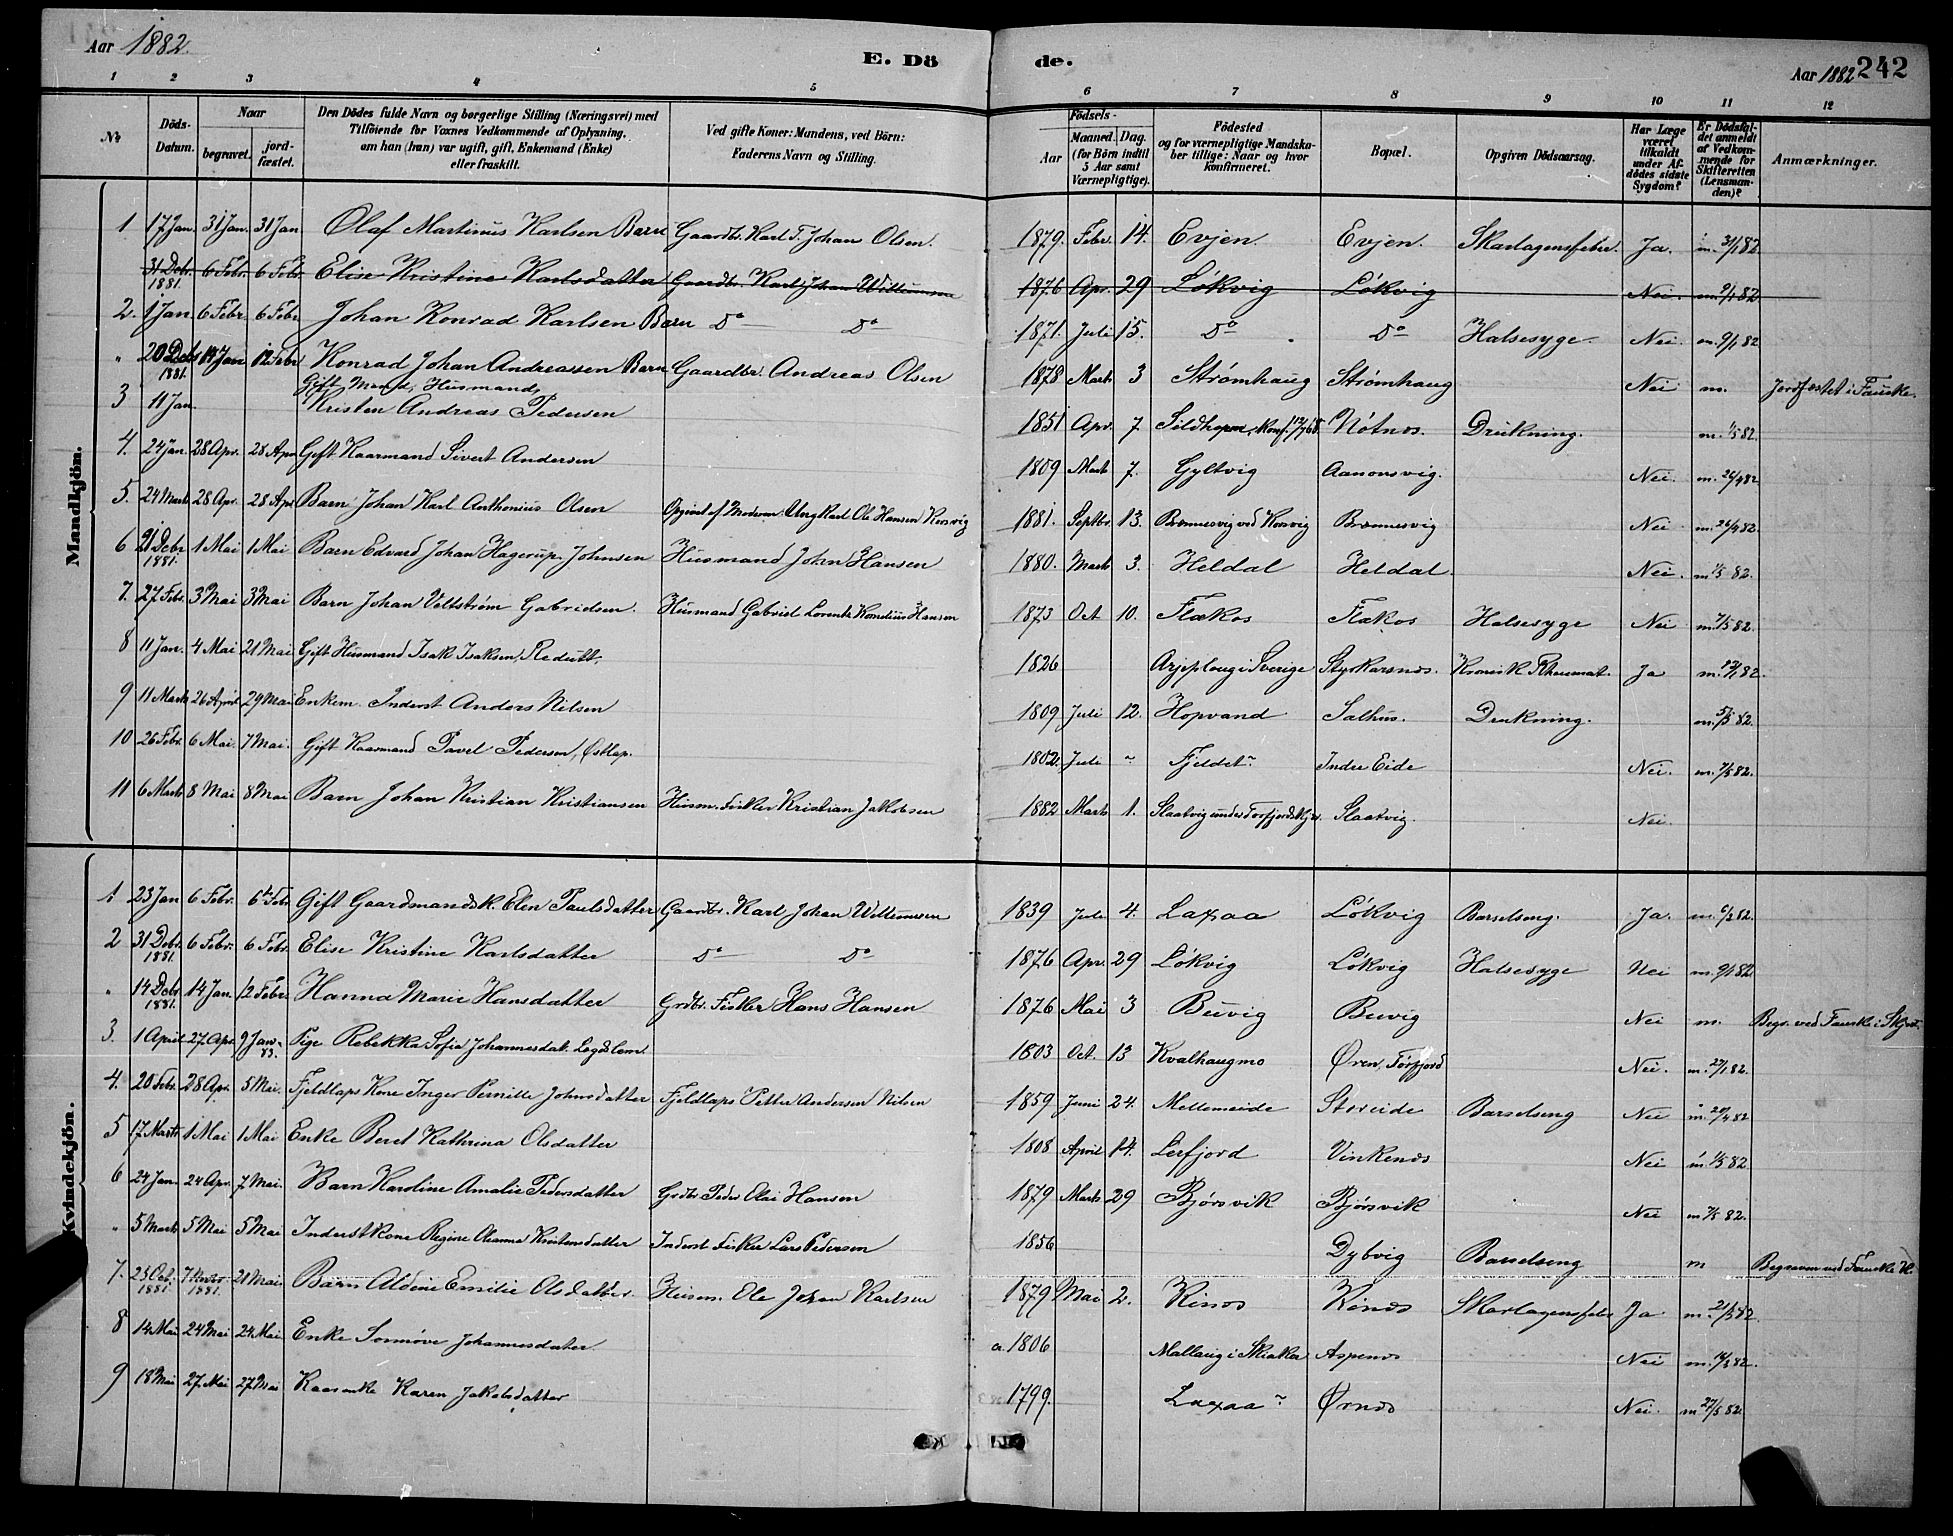 Aar 1882.
E. Dö
de.
Aar 1882 242
1 2 3 4 5 6 7 8 9 10 11 12
№ Döds-Datum. Naar begravet. jord-fæstet. Den Dödes fulde Navn og borgerlige Stilling (Næringsvei) med Tilföiende for Voxnes Vedkommende af Oplysning, om han (hun) var ugift, gift, Enkemand (Enke) eller fraskilt. Ved gifte Koner: Mandens, ved Börn: Faderens Navn og Stilling. Födsels- Aar Maaned. Dag. (for Börn indtil 5 Aar samt Værnepligtige). Födested og for værnepligtige Mandskaber tillige: Naar og hvor konfirmeret. Bopæl. Opgiven Dödsaarsag. Har Læge været tilkaldt under Afdödes sidste Sygdom? Er Dödsfaldet anmeldt af Vedkommende for Skifteretten (Lensmanden)? Anmærkninger.
Mandkjön.
1 17 Jan. 31 Jan. 31 Jan Olaf Martinus Karlsen Barn Gaardbr. Karl T. Johan Olsen. 1879. Febr. 14. Evjen. Evjen. Skarlagensfeber. Ja. m. 31/1 82
31 Debr. 1881. 6 Febr. 6 Febr. Elise Kristine Karlsdatter Gaardbr. Karl Johan Willumsen 1876 Apr. 29 Løkvig Løkvig Nei. m. 9/1 82
2. 1 Jan 6 Febr. 6 Febr. Johan Konrad Karlsen Barn Do Do 1871. Juli 15. Do Do Halsesyge. Nei. m. 9/1 82
" 20 Debr 1881. 14 Jan 12 Febr Konrad Johan Andreassen Barn Gaardbr. Andreas Olsen 1878 Mart. 3 Strømhaug Strømhaug Nei m. Jordfæstet i Fauske.
3 11 Jan. Gift Mand, Husmand, Kristen Andreas Pedersen 1851 Apr. 7 Nótnes. Drukning. m. 1/5 82.
4. 24 Jan. 28 Apr. 28 Apr. Gift Kaarmand Sivert Andersen 1809 Mart. 7. Gyltvig Aanonsvig. Nei. m. 26/4 82
5. 24 Mart. 28 Apr. 28 Apr. Barn Johan Karl Anthonius Olsen Opgivet af Moderen Ungkarl Ole Hansen Kosvig 1881. Septbr. 13. Brennesvig ved Kosvig Brennesvig Nei m. 26/4 82.
6 21 Debr 1881. 1 Mai 1 Mai Barn Edvard Johan Hagerup Johnsen Husmand John Hansen 1880. Mart. 3. Heldal Heldal. Nei. m. 1/5 82.
7. 27 Febr. 3 Mai 3 Mai Barn Johan Veltstrøm Gabrielsen. Husmand Gabriel Lorents Kornelius Hansen 1873 Oct 10. Flækos Flækos Halsesyge Nei m. 7/5 82.
8 11 Jan. 4 Mai 21 Mai Gift Husmand Isak Isaksen, Redutt. 1826 Arjeploug i Sverige Styrkarsnes. Kronisk Rheumat. Ja m. 82.
9 11 Marts 26 April 29 Mai Enkem. Inderst Anders Nilsen 1809 Juli 12. Hopvand Salhus. Drukning. m. 5/5 82.
10 26 Febr. 6 Mai. 7 Mai. Gift Kaarmand Pavel Pedersen, Østlap. 1802. Juli " Fjeldet " Indre Eide Nei. m. 7/5 82.
11 6 Marts 8 Mai 8 Mai Barn Johan Kristian Kristiansen Husm. Fisker Kristian Jakobsen 1882 Marts 1. Slaatvig Slaatvig. Nei.
Kvindekjön.
1 23 Jan 6 Febr. 6 Febr. Gift Gaardmandsk. Elen Paulsdatter Gaardbr. Karl Johan Willumsen 1839 Juli 4. Laxaa Løkvig Barselseng. Ja. m. 6/2 82.
2 31 Debr. 1881. 6 Febr. 6 Febr. Elise Kristine Karlsdatter Do Do 1876 Apr. 29 Løkvig Løkvig Halsesyge Nei m. 9/1 82
" 14 Debr. 1881. 14 Jan. 12 Febr. Hanna Marie Hansdatter Grdbr. Fisker Hans Hansen 1876 Mai 3 Buvig Buvig Nei m. Begr. ved Fauske i Skjerst.
3. 1 April 27 Apr. 9 Jan. 83. Pige Rebekka Sofia Johannesdat. Legdslem. 1803 Oct. 13 Kvalhaugmo Øren, Torfjord Nei. m. 82.
4. 20 Febr. 28 Apr. 5 Mai. Fjeldlaps Kone Inger Pernille Johnsdatter Fjeldlaps Petter Andersen Nilsen 1859 Juni 24. Mellemeide Storeide Barselseng Nei m. 29/4 82
5 17 Marts 1 Mai 1 Mai Enke Beret Kathrina Olsdatter 1808 April 14. Leirfjord Vinkenes Nei m. 1/5 82.
6 24 Jan. 24 Apr. 7 Mai. Barn Karoline Amalie Pedersdatter Grdbr. Peder Olai Hansen 1879 Marts 29 Bjørsvik Bjørsvik Nei m. 7/5 82.
" 5 Marts 5 Mai 5 Mai Inderstkone Regine Oleanna Kristensdatter Inderst Fisker Lars Pedersen 1856 Dybvig Barselseng m Begraven ved Fauske K.
7. 23 Oct. 1881. 7 Novbr. 1881. 21 Mai. Barn Aldine Emilie Olsdatter. Husm. Ole Johan Karlsen 1879 Mai 2. Kines Kenes Skarlagensfeber Ja m. 21/5 82.
8 14 Mai 24 Mai 24 Mai Enke Sonnøve Johannesdatter. a. 1806 Mallang i Skiaker Aspenes Nei m. 82.
9 18 Mai 27 Mai 27 Mai Kaarenke Karen Jakobsdatter 1799. Laxaa " Ørnes Nei. m 27/5 82.